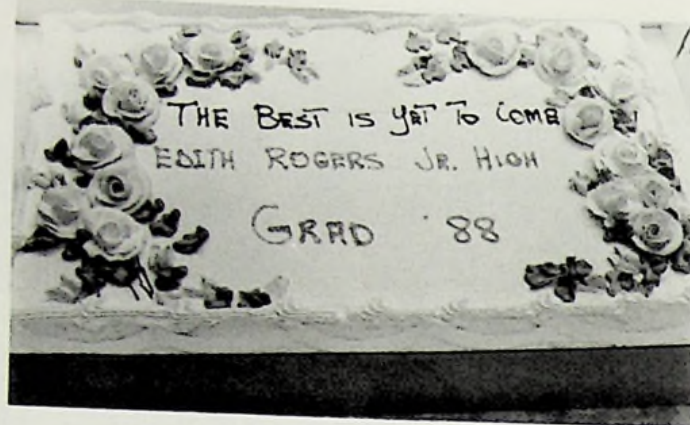 THE BEST IS YET TO COME
EDITH ROGERS JR. HIGH
GRAD '88